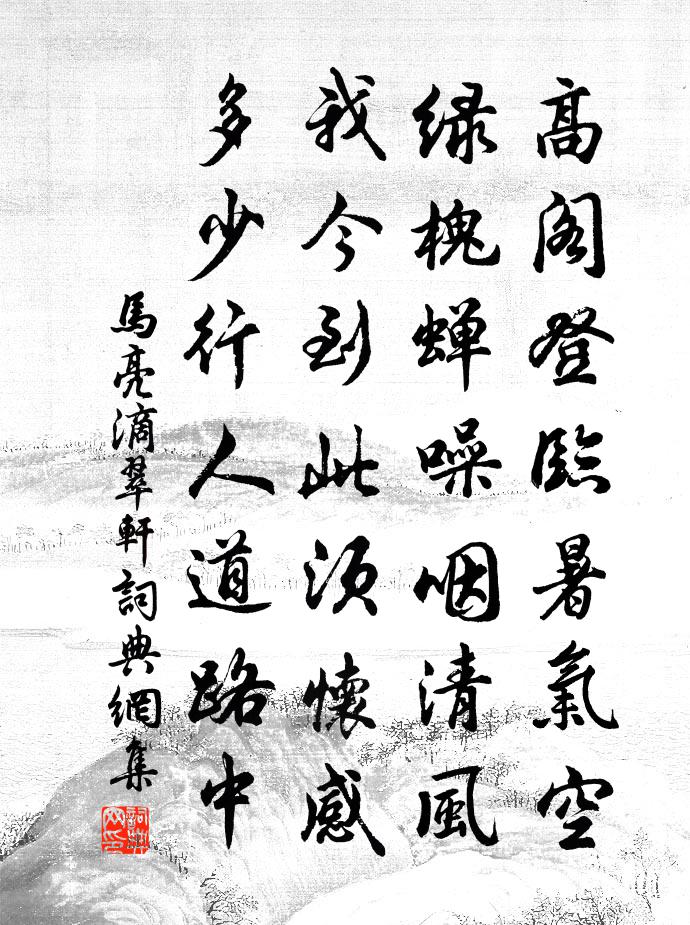 高閣登臨暑氣空
綠槐蟬噪咽清風
我今到此須懷感
多少行人道路中
馬亮滴翠軒詞典網集
詞典网印